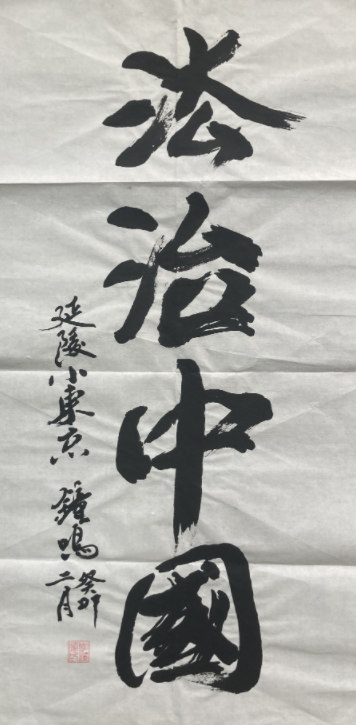 法治中國
延陵小東京 鐘鳴
癸卯
二月